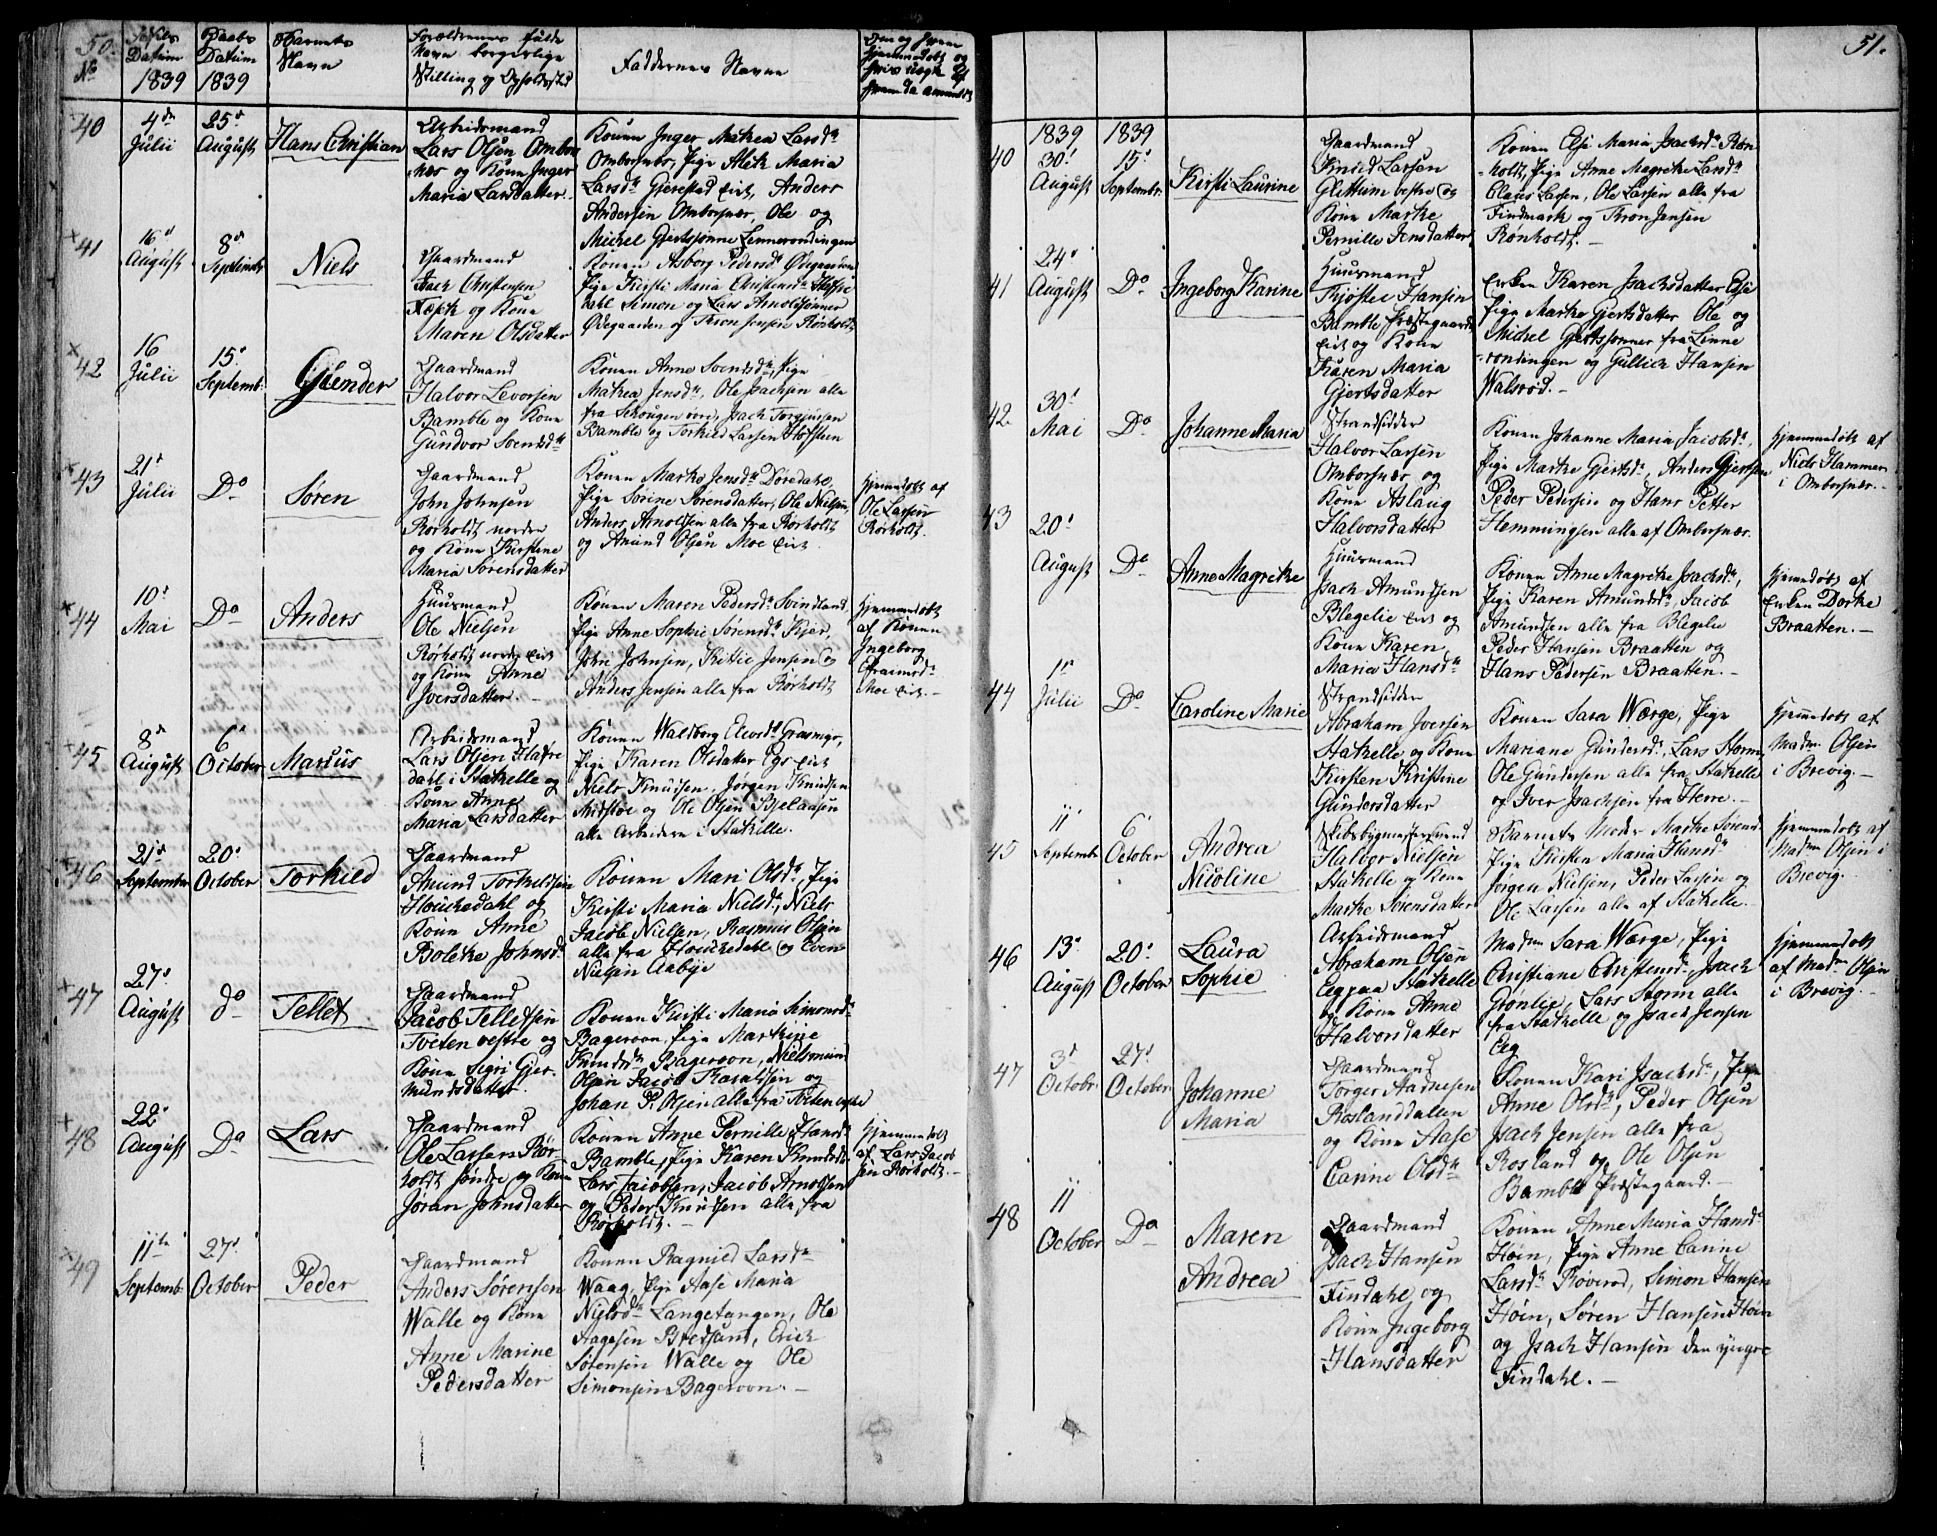 50.
No
Fødsels
Datum
1839
Daabs
Datum
1839
Barnets
Navn
Forældrenes fulde
Navn borgerlige
Stilling og Opholdsted
Faddernes Navne
40
4de
Julii
25d
August
Hans Christian
Arbeidsmand
Lars Olsen Ombors
nes og Kone Inger
Maria Larsdatter
Konen Inger Mathea Larsdr
Ombornes, Pige Maria
Larsdr Gjerestad Eiet, Anders
Andersen Ombornær, Ole og
Michel Gjertsønne Lennerondingen
41
16d
August
8d
Septembr
Niels
Gaardmand
Isach Christensen
og Kone
Maren Olsdatter
Konen Asborg Pedersd Ødegaarden
Pige Kirsti Maria Christensdr Hafre
dal Simon og Lars Arnoldsønner
Ødegaarden og Tron Jensen Rørholdt
42
16
Julii
15d
Septemb.
Gjender
Gaardmand
Halvor Levorsen
Bamble og Kone
Gundvor Svendsdr
Konen Anne Svendsdr, Pige
Mathea Jensdr, Ole Isachsen alle
fra Schougen øvre, Isach Torgjersen
Bamble og Torkild Larsen Hafsteen
43
21d
Julii
Do
Søren
Gaardmand
John Johnsen
Rørholdt nordre
og Kone Kirstine
Maria Sørensdatter
Konen Marthe Jensdr Dørdahl,
Pige Sørine Sørensdatter, Ole Nielsen,
Anders Arnoldsen alle fra Rørholdt
og Amund Olsen Moe Eiet
hjemmedøbt af
Ole Larsen
Rørholdt.
44
10d
Mai
Do
Anders
Huusmand
Ole Nielsen
Rørholdt nordre Eiet
og Kone Anne
Iversdatter. -
Konen Maren Pedersdr Svindland,
Pige Anne Sophie Sørensdr Kjer,
John Johnsen, Kittil Jensen og
Anders Jensen alle fra Rørholdt
hjemmedøbt
af Konen
Ingeborg
Efraimsdr
Moe Eiet. -
45
8d
August
6d
October
Marius
Arbeidsmand
Lars Olsen Hafre
dall i Stathelle og
Kone Anne
Maria Larsdatter
Konen Waldborg Elevsdr Grasmyr,
Pige Karen Olsdatter Eeg Eiet
Niels Knudsen, Jørgen Knudsen
Midstøe og Ole Olsen Bjelaasen
alle Arbeidere i Stathelle.
46
21d
September
20d
October
Torkild
Gaardmand
Amund Torkildsen
Houkedahl og
Kone Anne
Bolethe Johnsdr
Konen Mari Olsdr, Pige
Kirsti Maria Nielsdr, Niels
Jacob Nielsen, Rasmus Olsen
alle fra Houkedahl og Even
Nielsen Aabye
47
27d
August
do
Tellef
Gaardmand
Jacob Tellefsen
Tveten vestre og
Kone Sigri Gjer-
mundsdatter.
Konen Kirsti Maria Simonsdr
Bagervon, Pige Marthine
Knudsdr Bagervon, Nielsmand
Olsen Jacob Haraldsen og
Johan P. Olsen alle fra Tveten vestre
48
22d
August
Do
Lars
Gaardmand
Ole Larsen Rør-
holdt søndre og Kone
Jøran Johnsdatter
Konen Anne Pernille Hansdr
Bamble, Pige Karen Knudsdr
Lars Jacobsen, Jacob Arnoldsen
og Peder Knudsen alle fra
Rørholdt. -
hjemmedøbt
af Lars Jacob
sen Rørholdt. -
49
11te
Septemb.
27d
October
Peder
Gaardmand
Anders Sørensen
Walle og Kone
Anne Marine
Pedersdatter
Konen Ragnild Larsdr
Waag, Pige Aase Maria
Nielsdr Langetangen, Ole
Aagesen Bredsand, Erich
Sørensen Walle og Ole
Simonsen Bagervon. -
51.
1839
1839
40
30d
August
15d
Septembr.
Kirsti Laurine
Gaardmand
Knud Larsen
Glittum vestre og
Kone Marthe
Pernille Jensdatter
Konen Elsi Maria Isachsdr Røn
holdt, Pige Anne Magrethe Larsdr
Claus Larsen, Ole Larsen alle fra
Findmark og Tron Jensen
Rønholdt. -
41
24d
August
Do
Ingeborg Karine
Huusmand
Thjøstel Hansen
Bamble Præstegaards
Eiet og Kone
Karen Maria
Gjertsdatter
Enken Karen Isachsdatter
Pige Marthe Gjertsdatter Ole og
Michel Gjertsønner fra Linne
rondingen og Gullich Hansen
Walsrød. -
42.
30d
Mai
Do
Johanne Maria
Strandsidder
Halvor Larsen
Ombornær og
Kone Aslaug
Halvorsdatter
Konen Johanne Maria Jacobsdr,
Pige Marthe Gjertsdr, Anders Gjertsen
Peder Pedersen og Hans Petter
Hemmingsen alle af Ombornær.
hjemmedøbt af
Niels Hammer
i Ombornær. -
43
20d
August
Do
Anne Magrethe
Huusmand
Isach Amundsen
Blegelie Eiet og
Kone Karen
Maria Hansdr
Konen Anne Magrethe Isachsdr,
Pige Karen Amundsdr, Jacob
Amundsen alle fra Blegelie
Peder Hansen Braatten og
Hans Pedersen Braatten. -
hjemmedøbt af
Enken Dorthe
Braatten. -
44
1d
Julii
Do
Caroline Marie
Strandsidder
Abraham Iversen
Stathelle og Kone
Kirsten Kristine
Gundersdatter
Konen Sara Wærge, Pige
Mariane Gundersdr, Lars Storm
Ole Gundersen alle fra Stathelle
og Iver Isachsen fra Herre. -
hjemmedøbt af
Madm Olsen
i Brevig. -
45
11
Septembr
6
October
Andrea
Nicoline
Skibsbygmestersvend
Halvor Nielsen
Stathelle og Kone
Marthe Sørensdatter
Barnets Moder Marthe Sørensd
Pige Kirsten Maria Hansdr
Jørgen Nielsen, Peder Larsen og
Ole Larsen alle af Stathelle. -
hjemmedøbt af
Madm Olsen i
Brevig. -
46
13d
August
20d
October
Laura
Sophie
Arbeidsmand
Abraham Olsen
Stathelle
og Kone Anne
Halvorsdatter
Madm Sara Wærge, Pige
Christiane Christensdr, Isach
Grønlie, Lars Storm alle
fra Stathelle og Isach Jensen
Eeg
hjemmedøbt
af Madm Olsen
i Brevig. -
47
3d
Octobr.
27d
October
Johanne
Maria
Gaardmand
Torger Aadnesen
Roslanddalen
og Kone Aase
Carine Olsdr
Konen Kari Isachsdr, Pige
Anne Olsdr, Peder Olsen
Isach Jensen alle fra
Rosland og Ole Olsen
Bamble Præstegaard. -
48
11
October
Do
Maren
Andrea
Gaardmand
Isach Hansen
Findahl og
Kone Ingeborg
Hansdatter
Konen Anne Maria Hansdr
Høin, Pige Anne Carine
Larsdr Røverød, Simon Hansen
Høin, Søren Hansen Høin
og Isach Hansen den yngre
Findahl. -